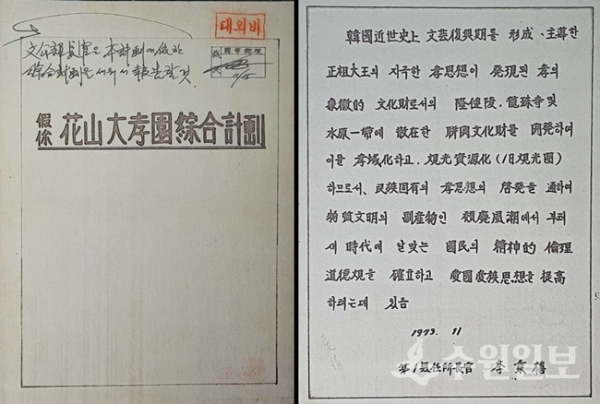 대외비
文公部長官은 本計劃에 依한
綜合計劃을
假稱 花山大孝園綜合計劃
韓國近世史上 文芸復興期를 形成、主導한
正祖大王의 지극한 孝思想이 発現된 孝의
象徵的 文化財로서의 隆健陵、龍珠寺 및
水原一帶에 散在한 聯関文化財를 開発하여
이를 孝域化하고、観光資源化(1日観光圈)
하므로서、民族固有의 孝思想의 啓発을 通하여
物質文明의 副産物인 頹廃風潮에서 부터
새 時代에 알맞는 國民의 精神的 倫理
道德観을 確立하고 愛國愛族思想을 提高
하려는데 있음
1973. 11
第1無任所長官
수원일보